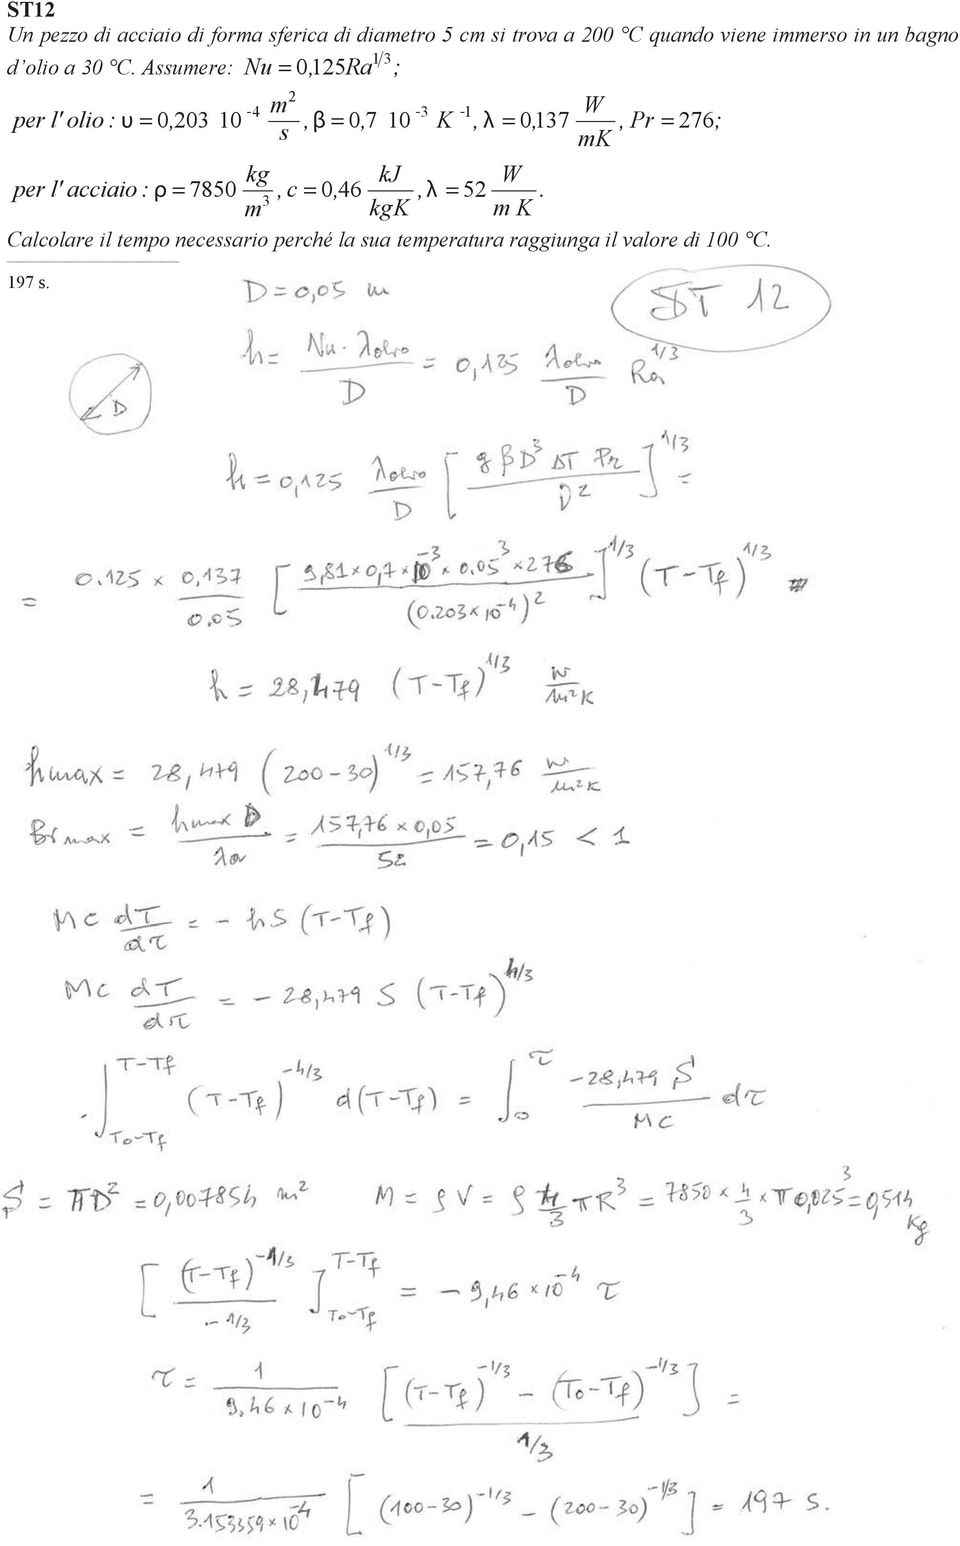 ST12
Un pezzo di acciaio di forma sferica di diametro 5 cm si trova a 200 °C quando viene immerso in un bagno
d’olio a 30 °C. Assumere: Nu = 0,125Ra^1/3 ;
per l' olio : υ = 0,203 10^-4 m^2/s , β = 0,7 10^-3 K^-1 , λ = 0,137 W/mK , Pr = 276;
per l' acciaio : ρ = 7850 kg/m^3 , c = 0,46 kJ/kgK , λ = 52 W/m K .
Calcolare il tempo necessario perché la sua temperatura raggiunga il valore di 100 °C.
197 s.
D = 0,05 m
ST 12
h = Nu · λolio / D = 0,125 λolio / D Ra^1/3
D
h = 0,125 λolio / D [ g β D^3 ΔT Pr / υ^2 ]^1/3 =
= 0.125 × 0,137 / 0.05 [ 9,81 × 0,7 × 10^-3 × 0.05^3 × 276 / (0.203 × 10^-4)^2 ]^1/3 (T - Tf)^1/3
h = 28,479 (T - Tf)^1/3 W/m²K
hmax = 28,479 (200 - 30)^1/3 = 157,76 W/m²K
Bimax = hmax D / λa = 157,76 × 0,05 / 52 = 0,15 < 1
Mc dT/dτ = - hS (T - Tf)
Mc dT/dτ = - 28,479 S (T - Tf)^4/3
∫_{To-Tf}^{T-Tf} (T - Tf)^-4/3 d(T - Tf) = ∫_0^τ -28,479 S / Mc dτ
S = πD² = 0,007854 m² M = ρ V = ρ 4/3 πR^3 = 7850 × 4/3 × π 0,025^3 = 0,514 Kg
[ (T - Tf)^-1/3 / -1/3 ]_{To-Tf}^{T-Tf} = - 9,46 × 10^-4 τ
τ = 1 / 9.46 × 10^-4 [ (T - Tf)^-1/3 - (To - Tf)^-1/3 ] / 1/3 =
= 1 / 3.153359 × 10^-4 [ (100 - 30)^-1/3 - (200 - 30)^-1/3 ] = 197 s.